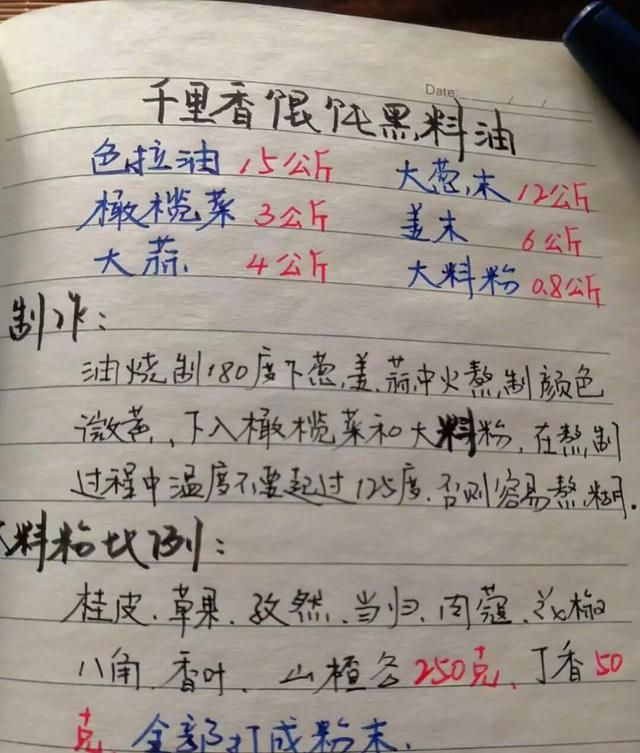 Date: / /
千里香馄饨黑料油
色拉油 15公斤 大葱末 12公斤
橄榄菜 3公斤 姜末 6公斤
大蒜. 4公斤 大料粉 0.8公斤
制作:
油烧制180度下葱、姜、蒜中火熬制颜色
微黄,下入橄榄菜和大料粉,在熬制
过程中温度不要超过125度.否则容易熬糊.
大料粉比例:
桂皮、草果、孜然、当归、肉蔻、花椒
八角、香叶、山楂各250克、丁香50
克 全部打成粉末.